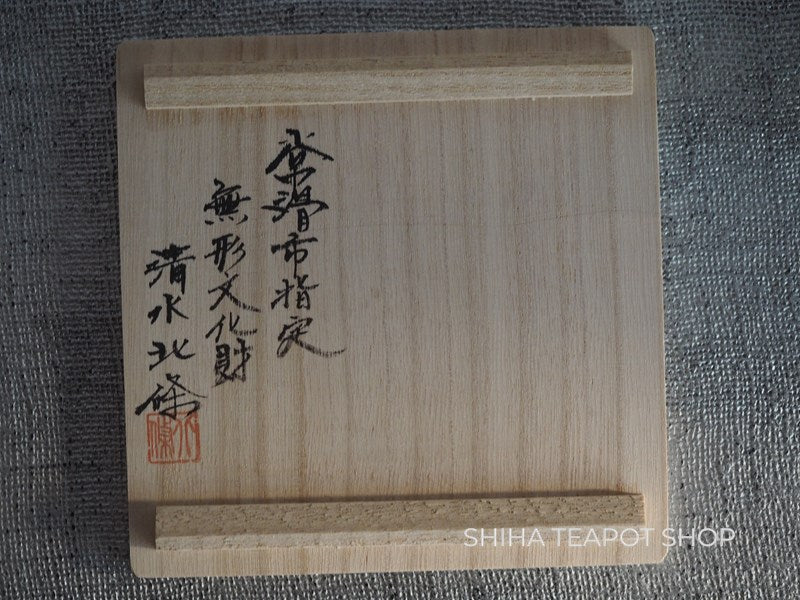 常滑市指定
無形文化財
清水北條
北條
SHIHA TEAPOT SHOP